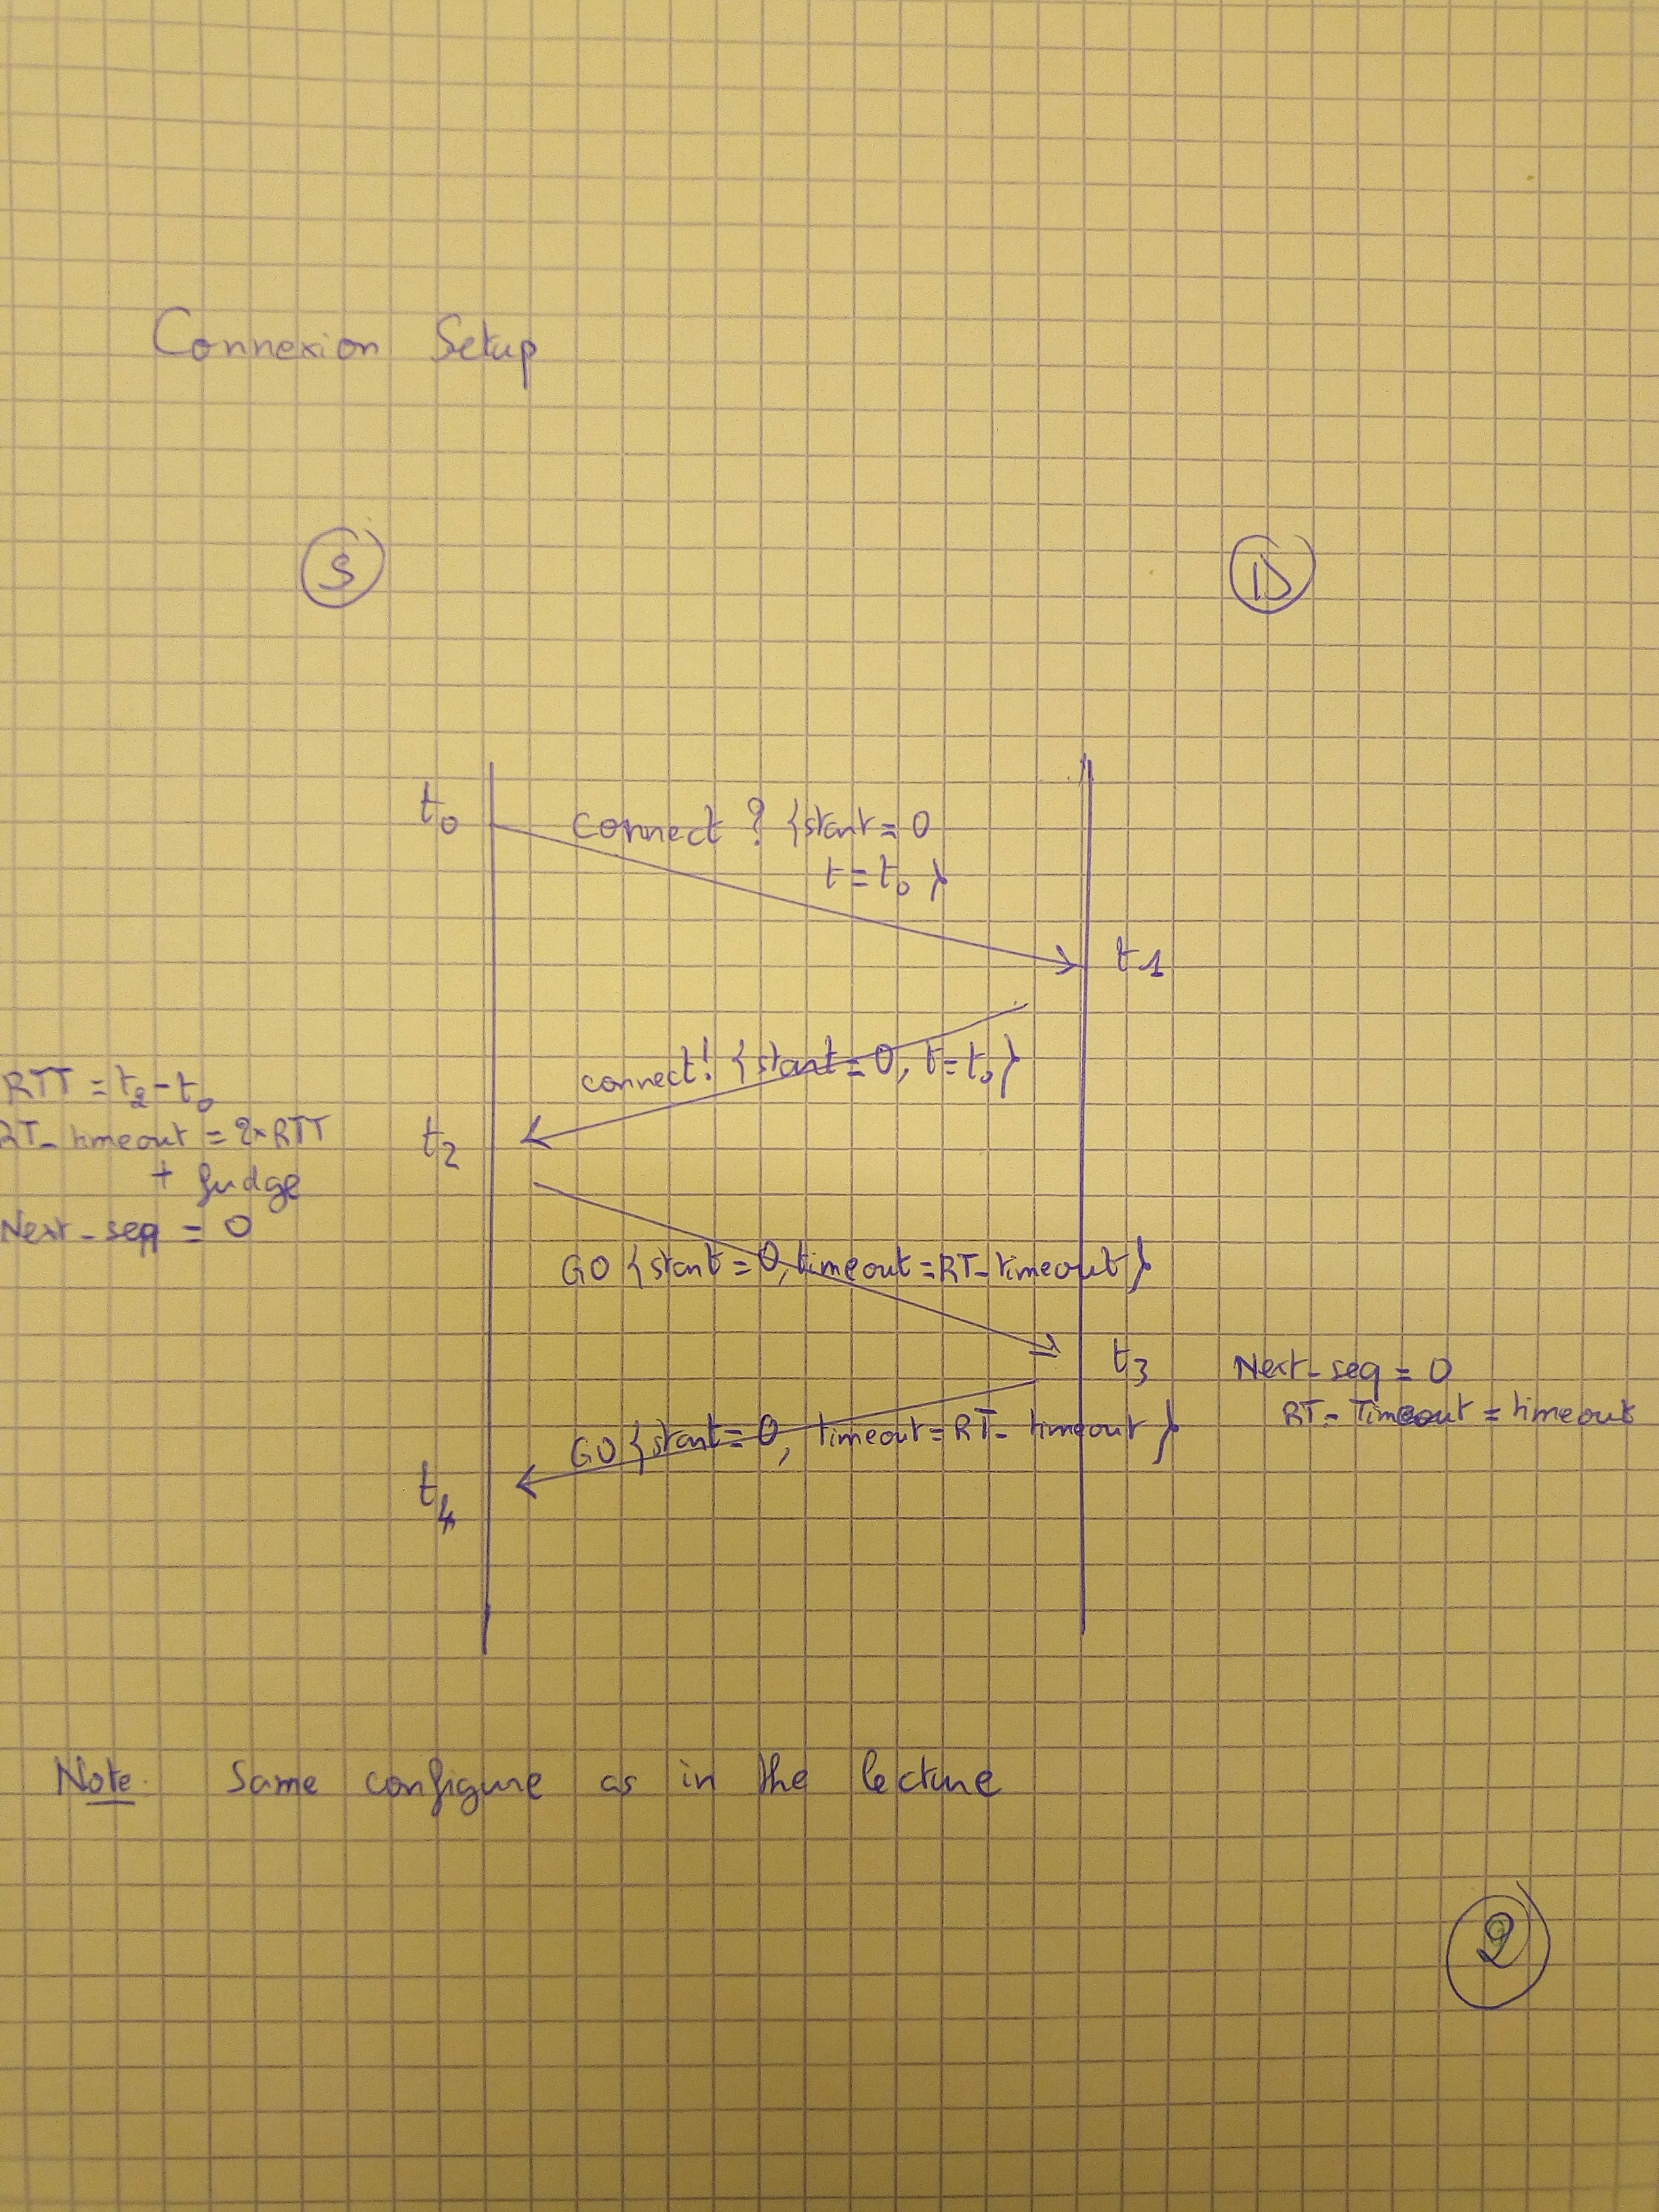 Connexion Setup
S
D
t0
connect ? {start = 0
t = t0 }
t1
connect! {start = 0, t = t0}
RTT = t2 - t0
RT_timeout = 2*RTT
+ fudge
Next_seq = 0
t2
GO {start = 0, timeout = RT_timeout}
t3
Next_seq = 0
RT_Timeout = timeout
GO {start = 0, timeout = RT_timeout }
t4
Note. Same configure as in the lecture
2